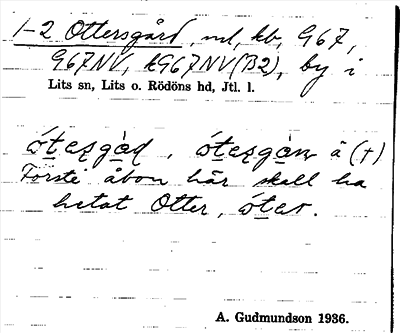 1-2 Ottersgård, ml, kb, G67,
G67NV, kG67NV(B2), by i
Lits sn, Lits o. Rödöns hd, Jtl. l.
å (†)
Förste åbon här skall ha
hetat Otter,
A. Gudmundson 1936.